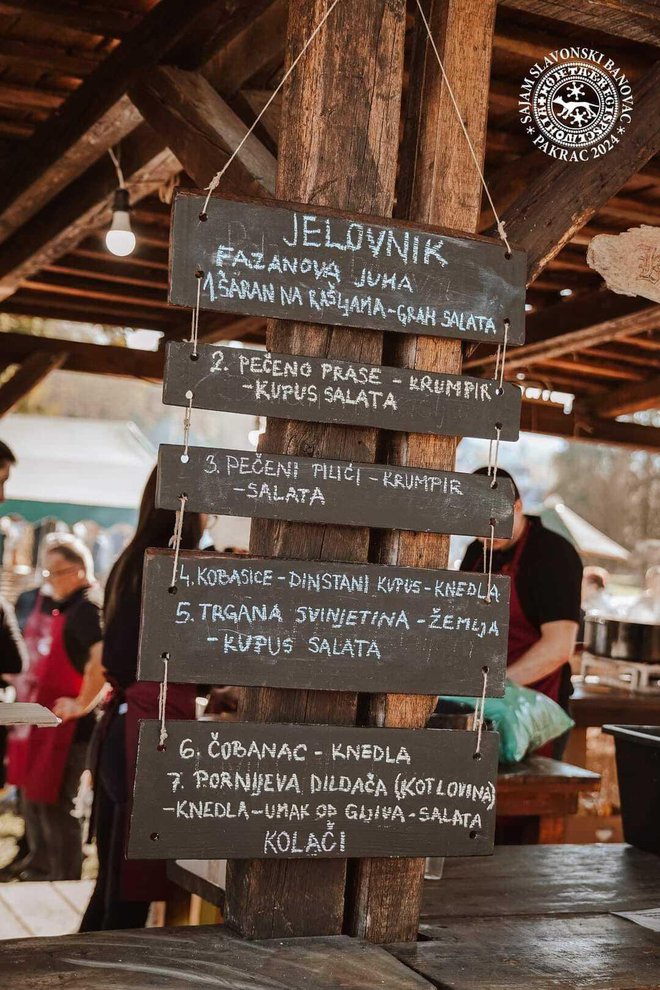 SAJAM SLAVONSKI BANOVAC
PAKRAC 2024
JELOVNIK
FAZANOVA JUHA
1. ŠARAN NA RAŠLJAMA - GRAH SALATA
2. PEČENO PRASE - KRUMPIR
- KUPUS SALATA
3. PEČENI PILIĆI - KRUMPIR
- SALATA
4. KOBASICE - DINSTANI KUPUS - KNEDLA
5. TRGANA SVINJETINA - ŽEMLJA
- KUPUS SALATA
6. ČOBANAC - KNEDLA
7. PORNIJEVA DILDAČA (KOTLOVINA)
- KNEDLA - UMAK OD GLJIVA - SALATA
KOLAČI